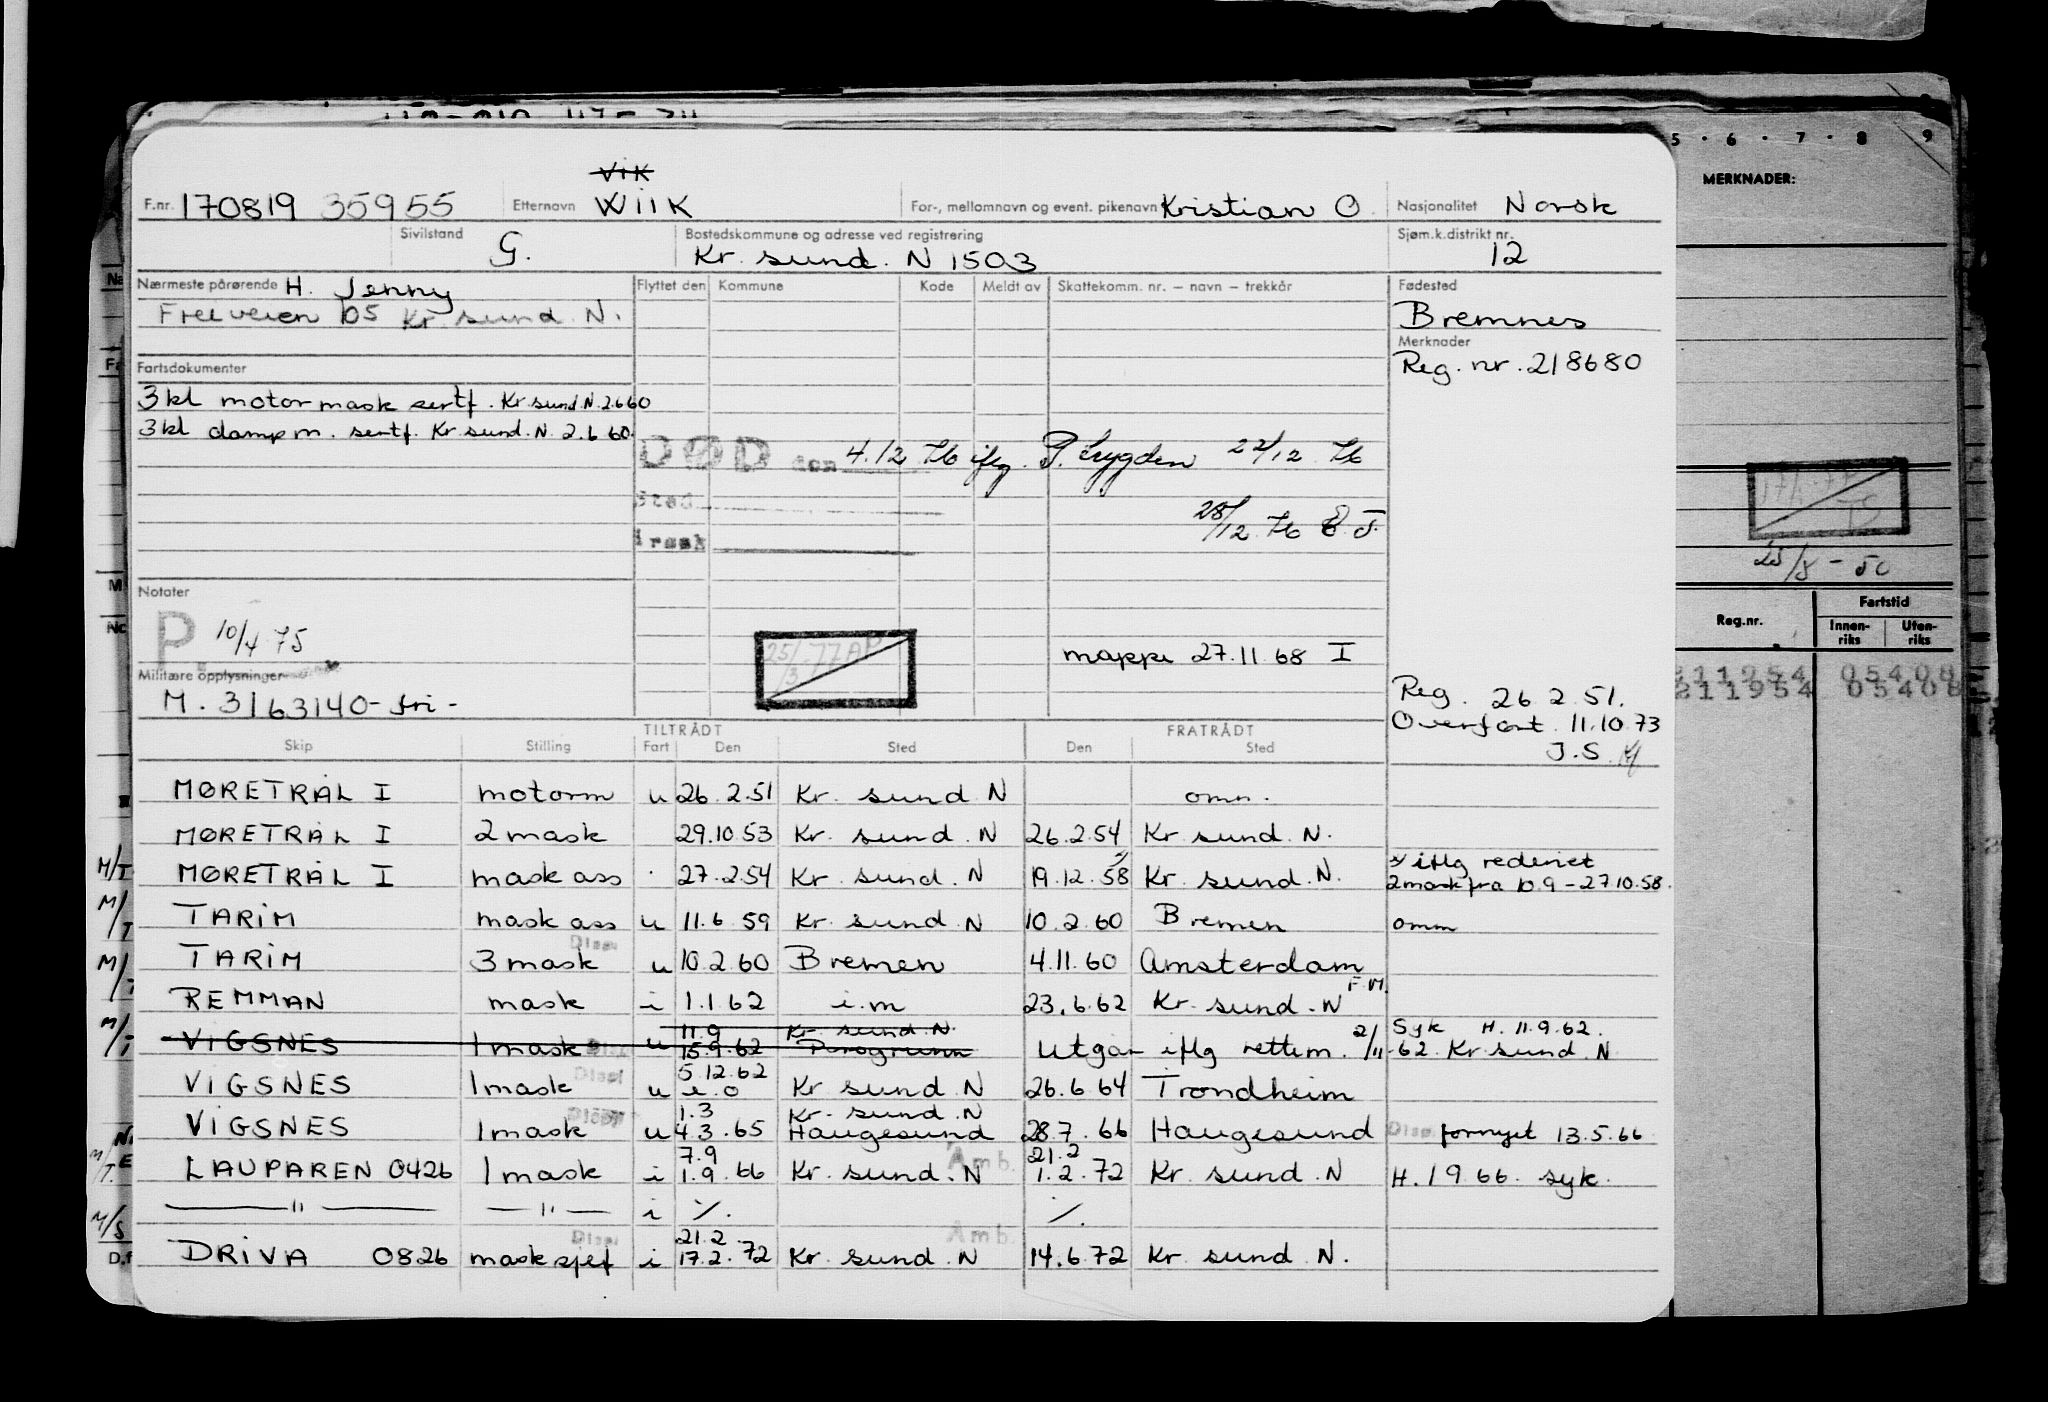 5 · 6 · 7 · 8 9
MERKNADER:
Vik
F.nr. 170819 35955 Etternavn Wiik For-, mellomnavn og event. pikenavn Kristian O. Nasjonalitet Norsk
Sivilstand G. Bostedskommune og adresse ved registrering Kr. sund. N 1503 Sjøm.k.distrikt nr. 12
Nærmeste pårørende H. Jenny Flyttet den Kommune Kode Meldt av Skattekomm. nr. – navn – trekkår Fødested
Freiveien 105 Kr. sund. N. Bremnes
Merknader
Fartsdokumenter Reg. nr. 218680
3 kl motormask sertf. Kr. sund. N. 2.6.60
3 kl damp m. sertf. Kr. sund. N. 2.6.60.
DØD den 4.12 76 iflg. P. Lygden 22/12 76
Sted
Årsak 28/12 76
Notater
P 10/4 75
25/3 77
mappe 27.11.68 I
Militære opplysninger
M. 3163140 - fri -
Reg. 26.2.51.
Overført. 11.10.73
J.S.
TILTRÅDT FRATRÅDT
Skip Stilling Fart Den Sted Den Sted
MØRETRÅL I motorm u 26.2.51 Kr. sund N omm.
MØRETRÅL I 2 mask 29.10.53 Kr. sund. N 26.2.54 Kr sund. N.
MØRETRÅL I mask ass 27.2.54 Kr. sund. N 19.12.58 Kr. sund. N. x/ iflg rederiet
2 mask fra 10.9 – 27.10.58.
M/T TARIM mask ass u 11.6.59 Kr. sund. N 10.2.60 Bremen omm
M/T TARIM Disp. 3 mask u 10.2.60 Bremen 4.11.60 Amsterdam
M/T REMMAN mask i 1.1.62 i.m 23.6.62 Kr. sund. N F.M.
M/T VIGSNES 1 mask Disp. u 11.9 Kr. sund. N.
15.9.62 Porsgrunn Utgår iflg rettem. 2/11-62 Syk H. 11.9.62. Kr. sund. N
VIGSNES 1 mask Disp. u 5.12.62 e.o Kr. sund. N 26.6.64 Trondheim
VIGSNES 1 mask Disp. u 1.3 Kr. sund. N
4.3.65 Haugesund 28.7.66 Haugesund Disp. fornyet 13.5.66
M/T LAUPAREN 0426 1 mask i 7.9
1.9.66 Kr. sund. N Amb. 21.2
1.2.72 Kr. sund. N H. 1 9 66. syk.
— " — — " — i ⁒ ⁒
M/S DRIVA 0826 mask sjef Disp. i 21.2
17.2.72 Kr. sund. N Amb. 14.6.72 Kr. sund. N.
23/8 - 50
Reg.nr. Fartstid
Innenriks Utenriks
211954 05408
211954 05408